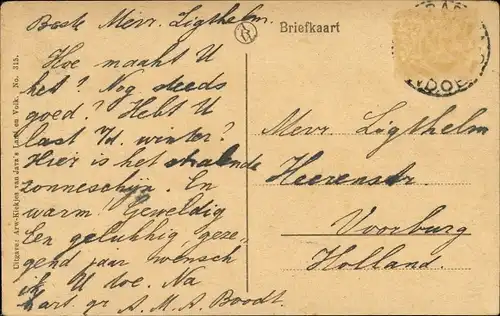 Beste Mevr. Ligthelm.
Hoe maakt U
het? Nog steeds
goed? Hebt U
last v/d. winter?
Hier is het stralende
zonneschijn. En
warm! Geweldig
Een gelukkig geze-
gend jaar wensch
ik U toe. Na
hart. gr A.M.A. Boodt.
Briefkaart
Mevr. Ligthelm
Heerenstr.
Voorburg
Holland.
Uitgave: Arw-Kiekjes van Java's Land en Volk. No. 313.